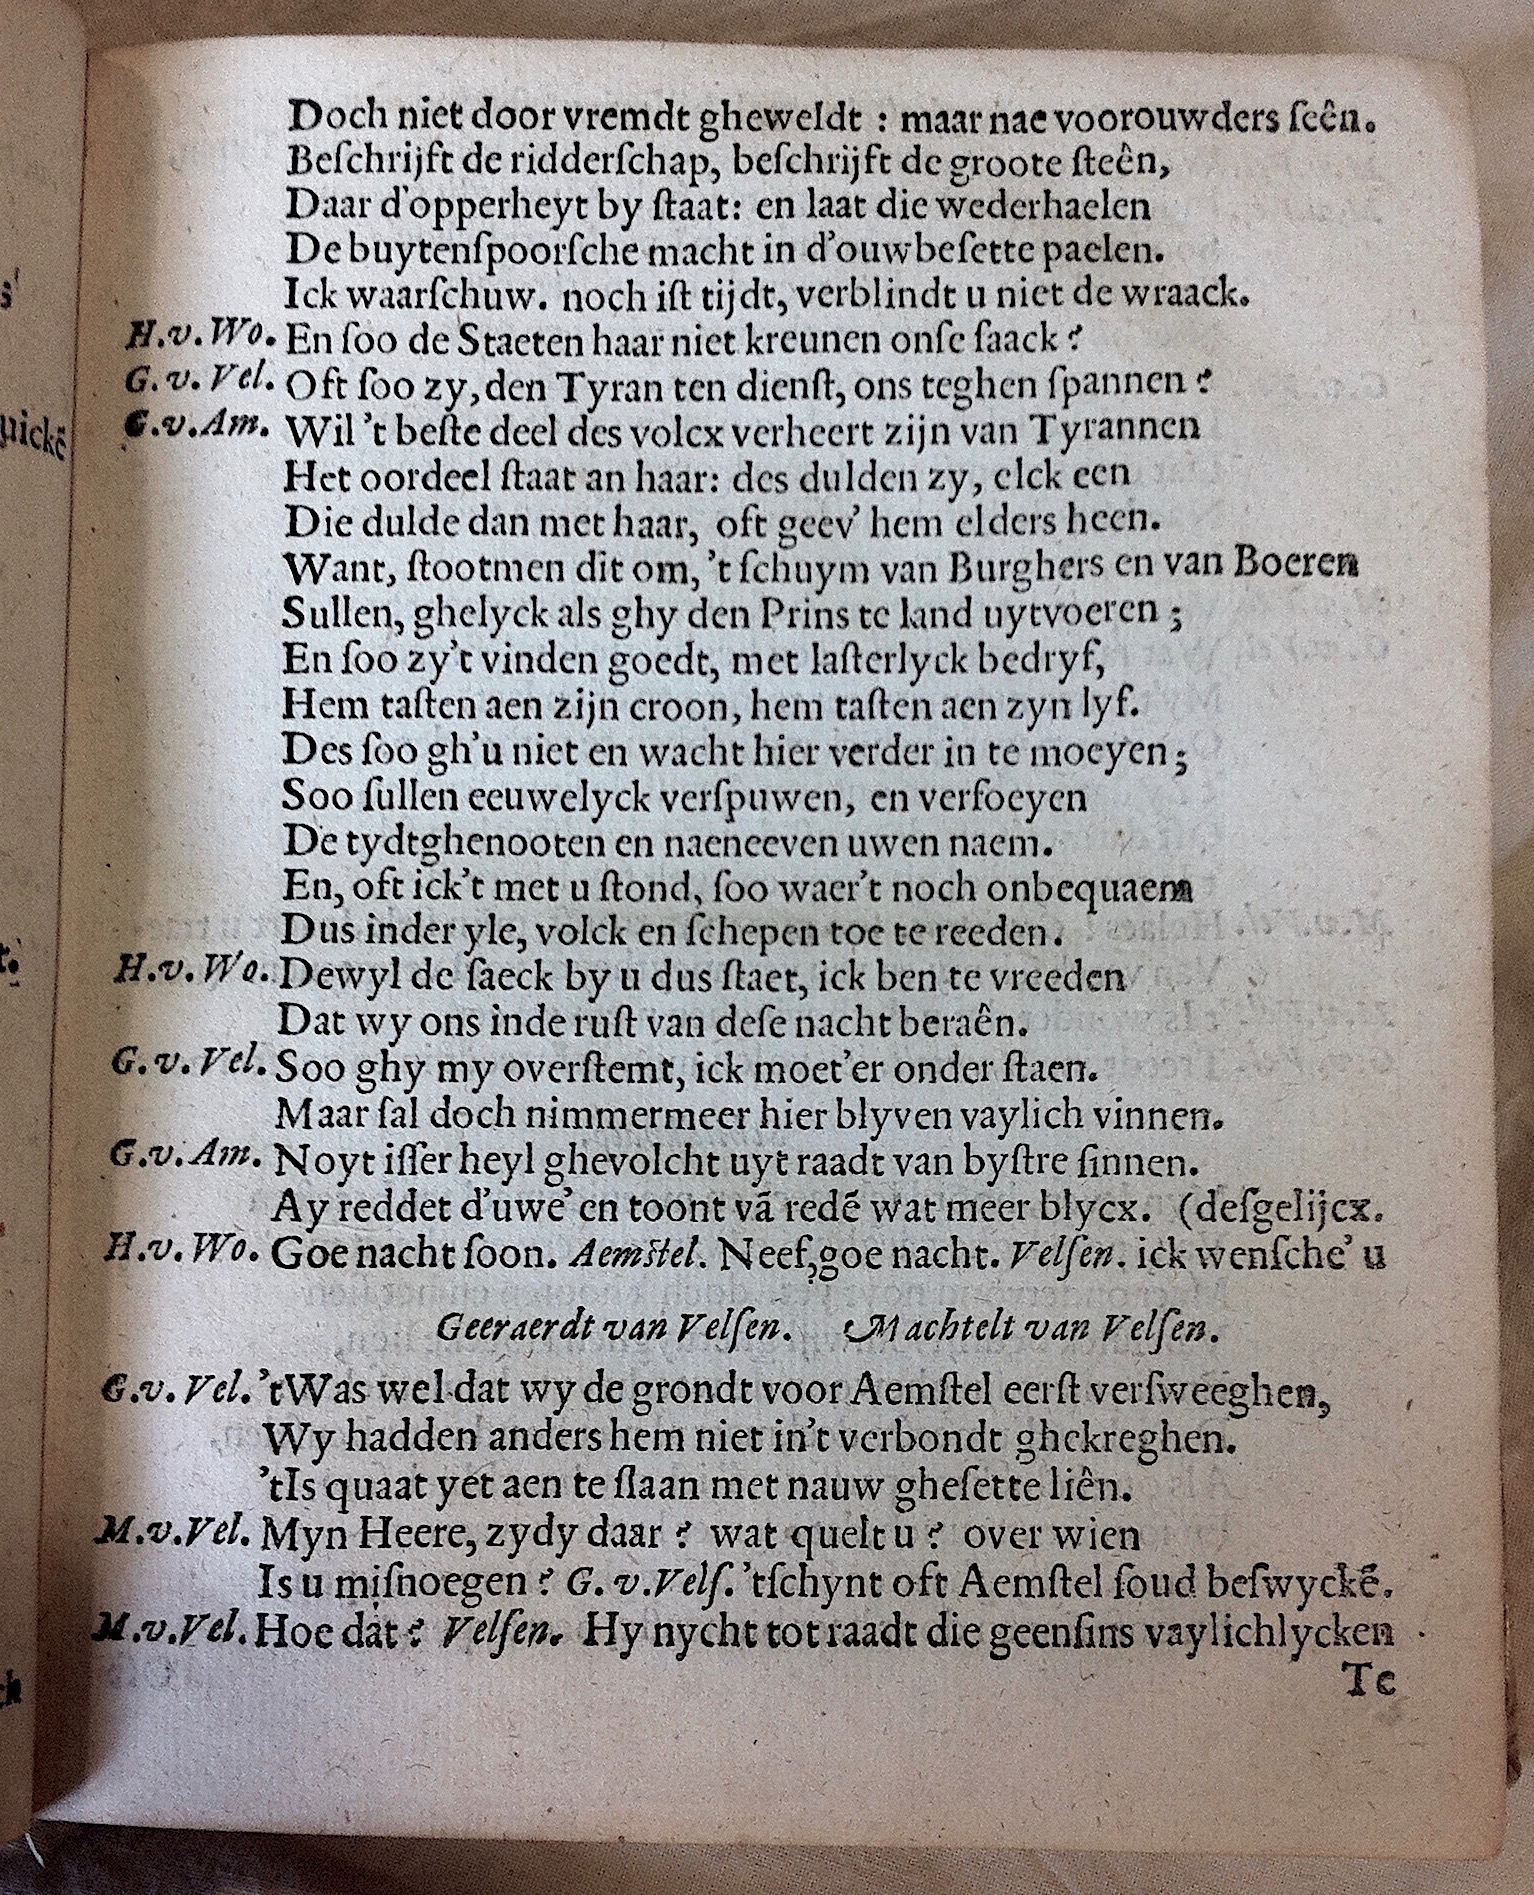 Doch niet door vremdt gheweldt : maar nae voorouwders ſeên.
Beſchrijft de ridderſchap, beſchrijft de groote ſteên,
Daar d'opperheyt by ſtaat: en laat die wederhaelen
De buytenſpoorſche macht in d'ouwbeſette paelen.
Ick waarſchuw. noch iſt tijdt, verblindt u niet de wraack.
H.v.Wo. En ſoo de Staeten haar niet kreunen onſe ſaack ?
G.v.Vel. Oft ſoo zy, den Tyran ten dienſt, ons teghen ſpannen ?
G.v.Am. Wil 't beſte deel des volcx verheert zijn van Tyrannen
Het oordeel ſtaat an haar: des dulden zy, elck een
Die dulde dan met haar, oft geev' hem elders heen.
Want, ſtootmen dit om, 't ſchuym van Burghers en van Boeren
Sullen, ghelyck als ghy den Prins te land uytvoeren ;
En ſoo zy't vinden goedt, met laſterlyck bedryf,
Hem taſten aen zijn croon, hem taſten aen zyn lyf.
Des ſoo gh'u niet en wacht hier verder in te moeyen ;
Soo ſullen eeuwelyck verſpuwen, en verfoeyen
De tydtghenooten en naeneeven uwen naem.
En, oft ick't met u ſtond, ſoo waer't noch onbequaem
Dus inder yle, volck en ſchepen toe te reeden.
H.v.Wo. Dewyl de ſaeck by u dus ſtaet, ick ben te vreeden
Dat wy ons inde ruſt van deſe nacht beraên.
G.v.Vel. Soo ghy my overſtemt, ick moet'er onder ſtaen.
Maar ſal doch nimmermeer hier blyven vaylich vinnen.
G.v.Am. Noyt iſſer heyl ghevolcht uyt raadt van byſtre ſinnen.
Ay reddet d'uwe' en toont vã redẽ wat meer blycx. (deſgelijcx.
H.v.Wo. Goe nacht ſoon. Aemſtel. Neef, goe nacht. Velſen. ick wenſche' u
Geeraerdt van Velſen. Machtelt van Velſen.
G.v.Vel. 'tWas wel dat wy de grondt voor Aemſtel eerſt verſweeghen,
Wy hadden anders hem niet in't verbondt ghekreghen.
'tIs quaat yet aen te ſlaan met nauw gheſette liên.
M.v.Vel. Myn Heere, zydy daar ? wat quelt u ? over wien
Is u miſnoegen ? G.v.Velſ. 'tſchynt oft Aemſtel ſoud beſwyckẽ.
M.v.Vel. Hoe dat ? Velſen. Hy nycht tot raadt die geenſins vaylichlycken
Te